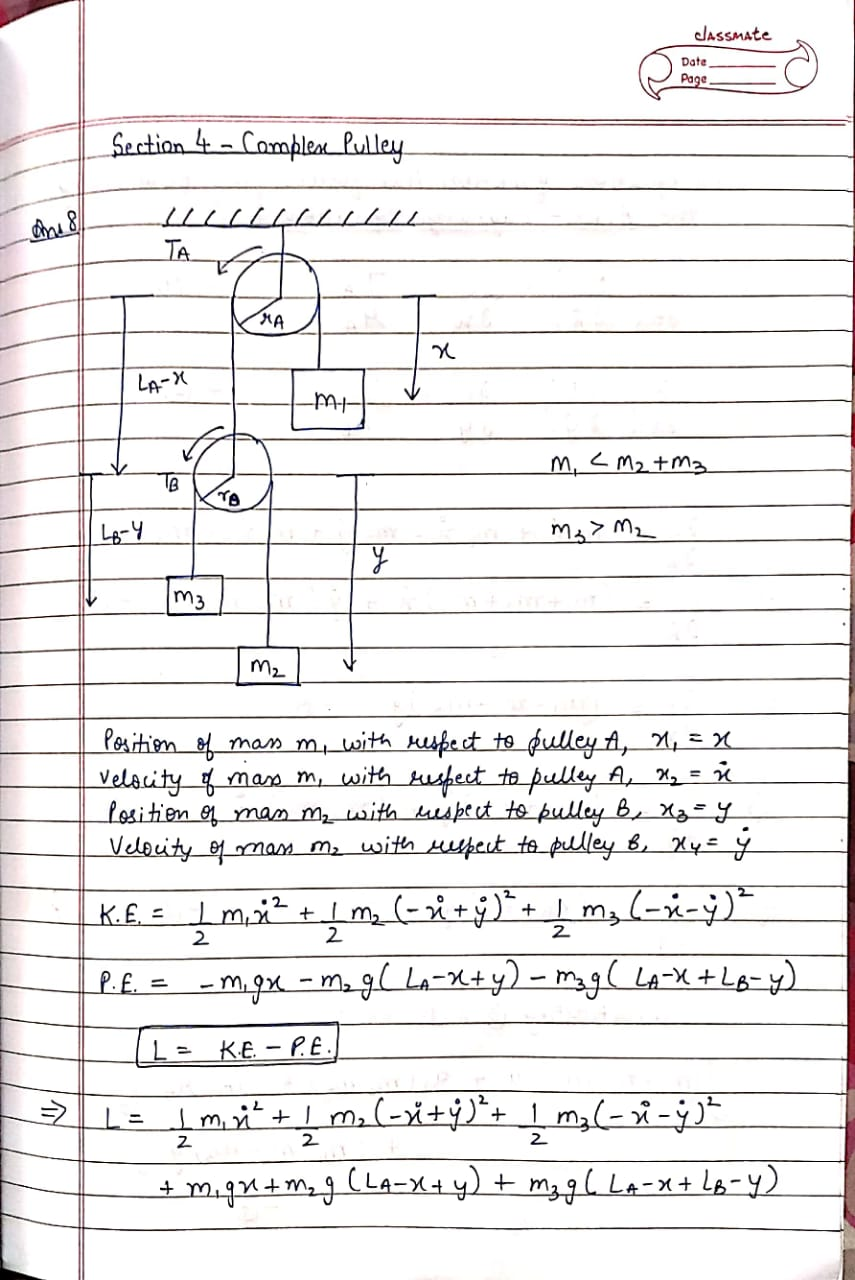 classmate
Date
Page
Section 4 - Complex Pulley
Ans 8
TA
rA
x
LA-x
m1
m1 < m2 + m3
TB
rB
LB-y
m3 > m2
y
m3
m2
Position of mass m1 with respect to pulley A, x1 = x
Velocity of mass m1 with respect to pulley A, x2 = ẋ
Position of mass m2 with respect to pulley B, x3 = y
Velocity of mass m2 with respect to pulley B, x4 = ẏ
K.E. = 1/2 m1ẋ² + 1/2 m2 (-ẋ+ẏ)² + 1/2 m3 (-ẋ-ẏ)²
P.E. = -m1gx - m2g(LA-x+y) - m3g(LA-x+LB-y)
L = K.E. - P.E.
⇒ L = 1/2 m1ẋ² + 1/2 m2 (-ẋ+ẏ)² + 1/2 m3 (-ẋ-ẏ)²
+ m1gx + m2g (LA-x+y) + m3g (LA-x+LB-y)